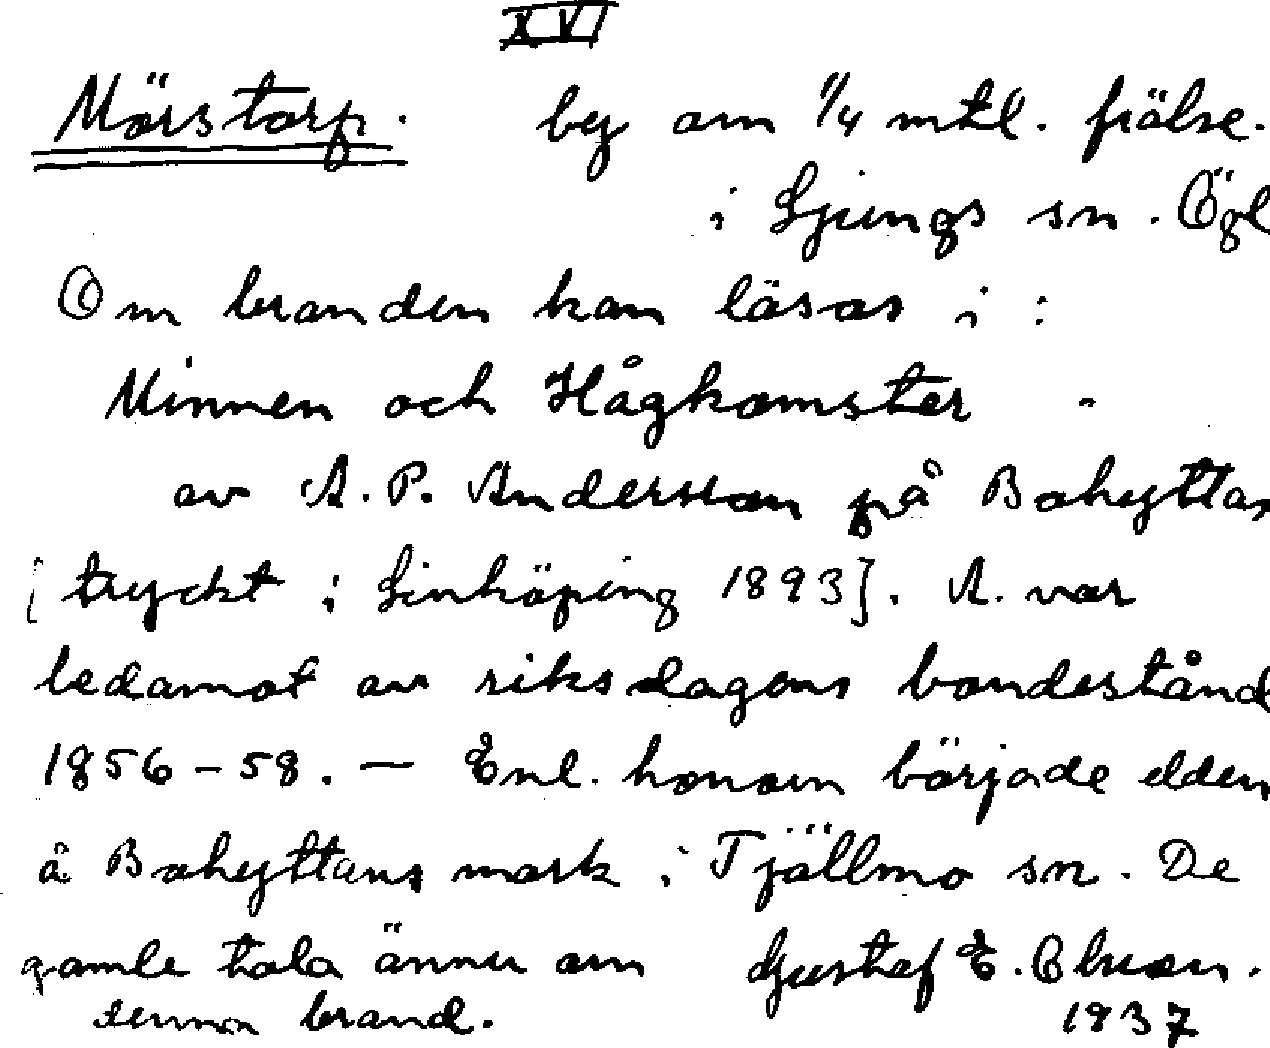 XVI
Mörstorp. by om 1/4 mtl. frälse.
i Ljungs sn. Ögl
Om branden kan läsas i :
Minnen och Hågkomster -
av A. P. Andersson på Bohyttan
[tryckt i Linköping 1893]. A. var
ledamot av riksdagens bondestånd
1856-58. — Enl. honom började elden
å Bohyttans mark i Tjällmo sn. De
gamle tala ännu om Gustaf E. Olsson.
denna brand. 1937